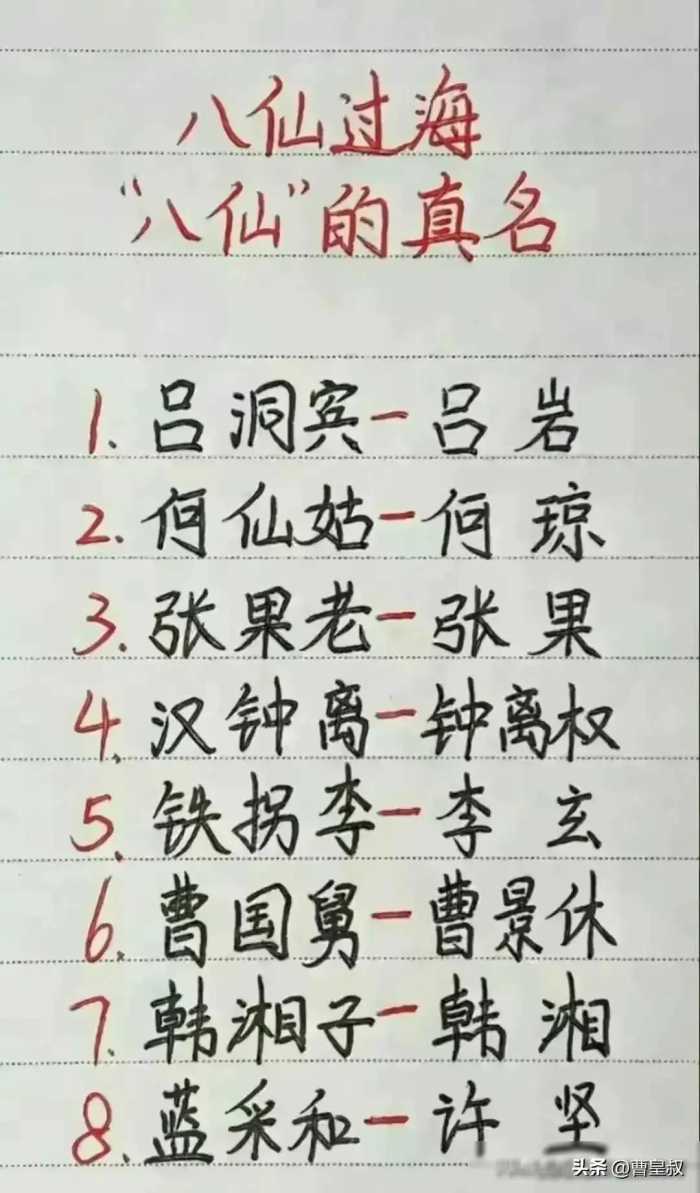 八仙过海
“八仙”的真名
1. 吕洞宾－吕岩
2. 何仙姑－何琼
3. 张果老－张果
4. 汉钟离－钟离权
5. 铁拐李－李玄
6. 曹国舅－曹景休
7. 韩湘子－韩湘
8. 蓝采和－许坚
头条 @曹皇叔